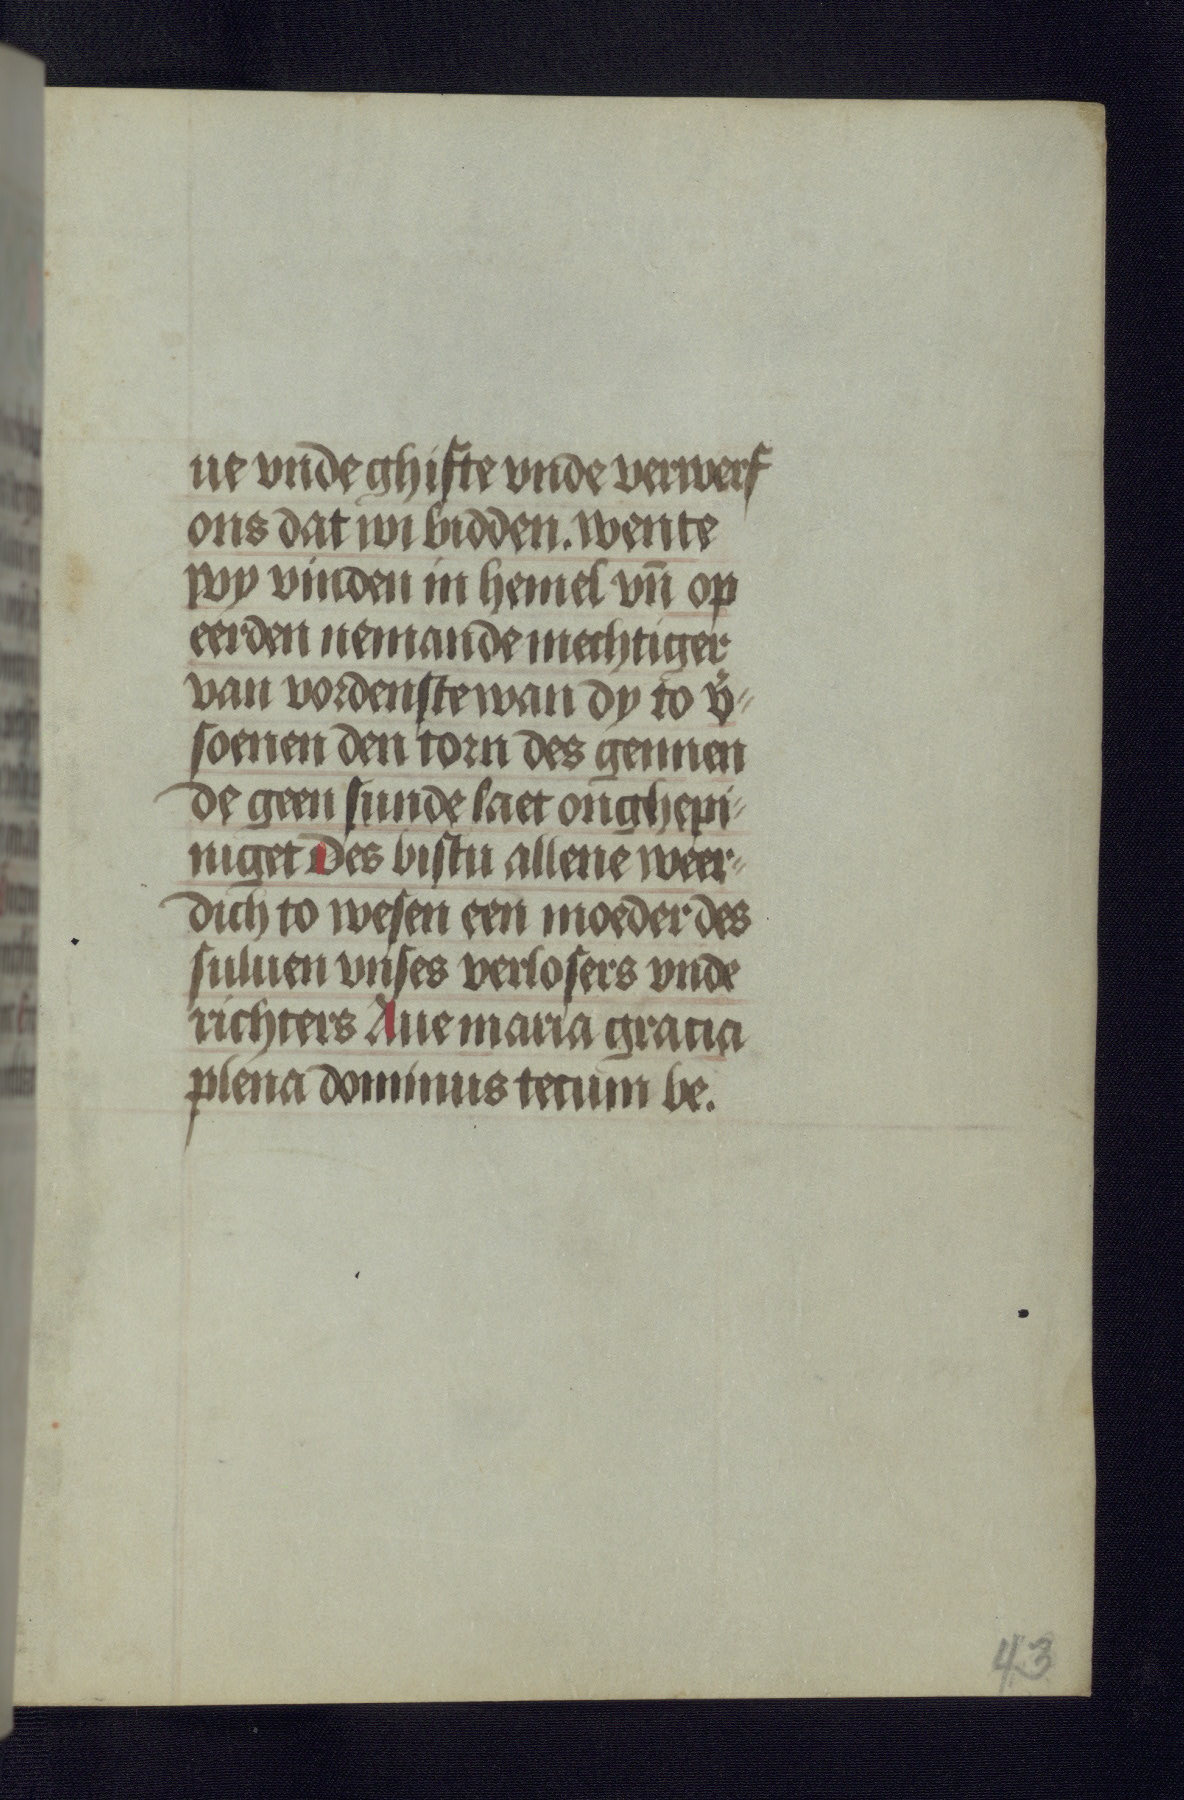 ue vnde ghifte vnde verwerf
ons dat wi bidden. wente
wy vinden in hemel vn̄ op
eerden nemande mechtiger
van vordenste wan dy to v̈-
soenen den torn des gennen
de geen sunde laet onghepi-
niget Des bistu allene weer-
dich to wesen een moeder des
suluen vnses verlosers vnde
richters Aue maria gracia
plena dominus tecum be.
43